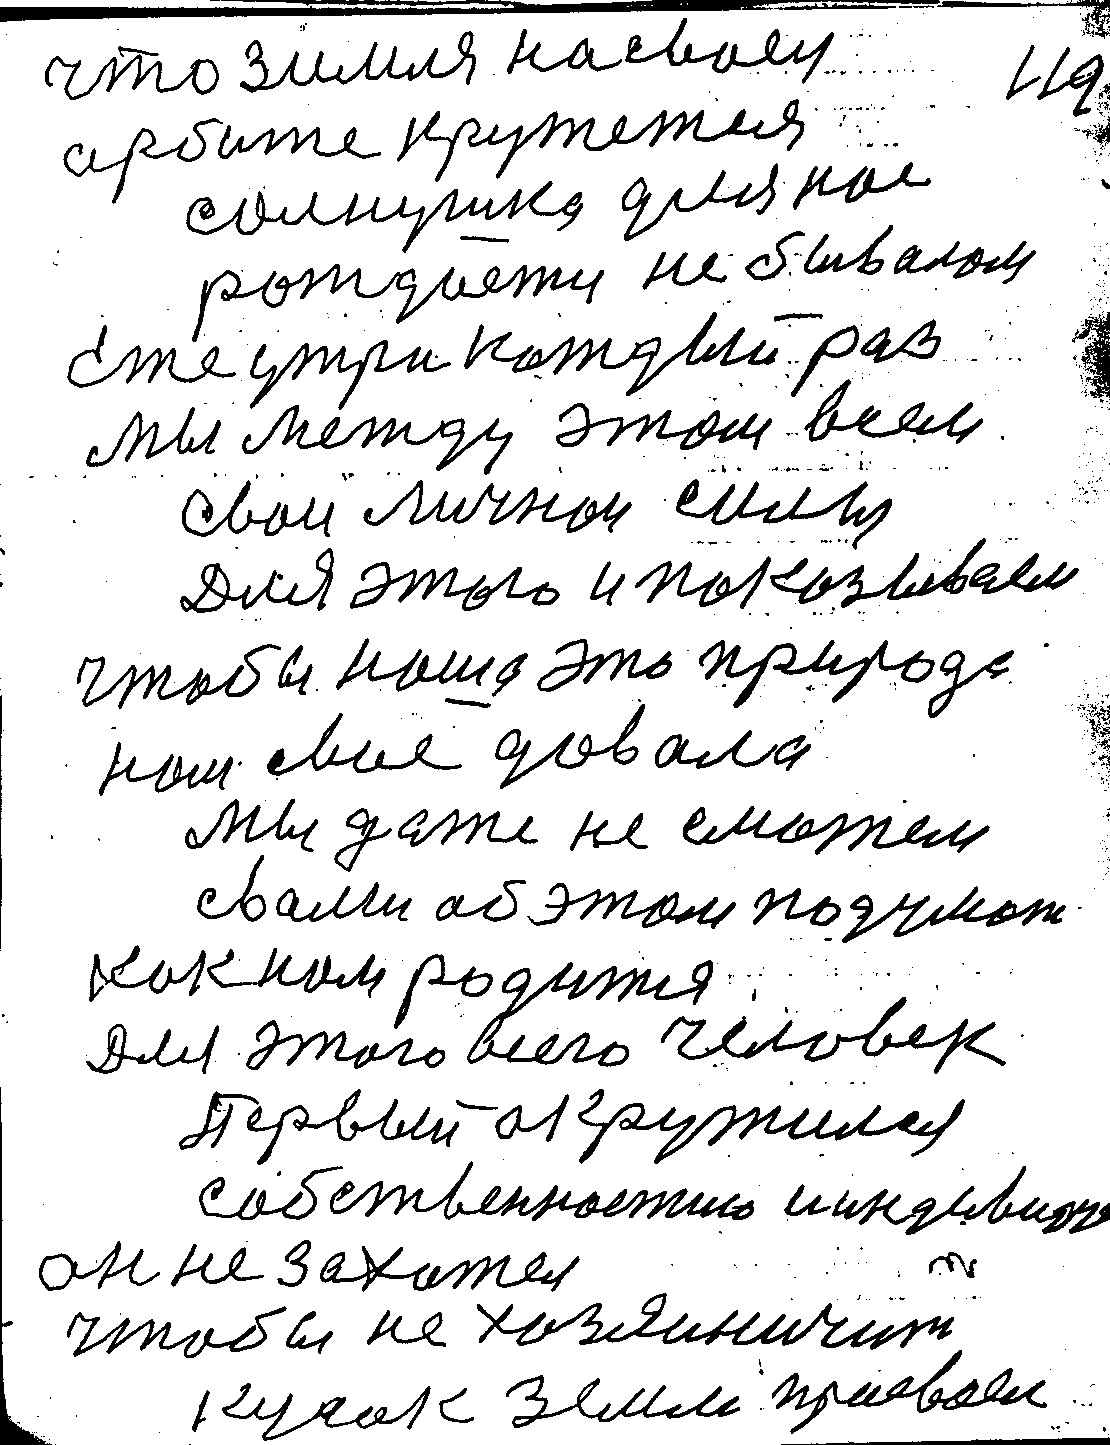 что зимля на своеи 119
арбите кружетея
солнушка для нас
рождаети не бывалом
Сте утри каждый раз
мы между этом всем
свои личнои силы
Для этого и показываем
чтобы наша это природа
нам свое довала
мы даже не сможем
свами об этом подумат
как нам родится
Для этого всего человек
Первый акружился
собственностию
он не захотел
чтобы не хозяиничит
кусок земли присвоен